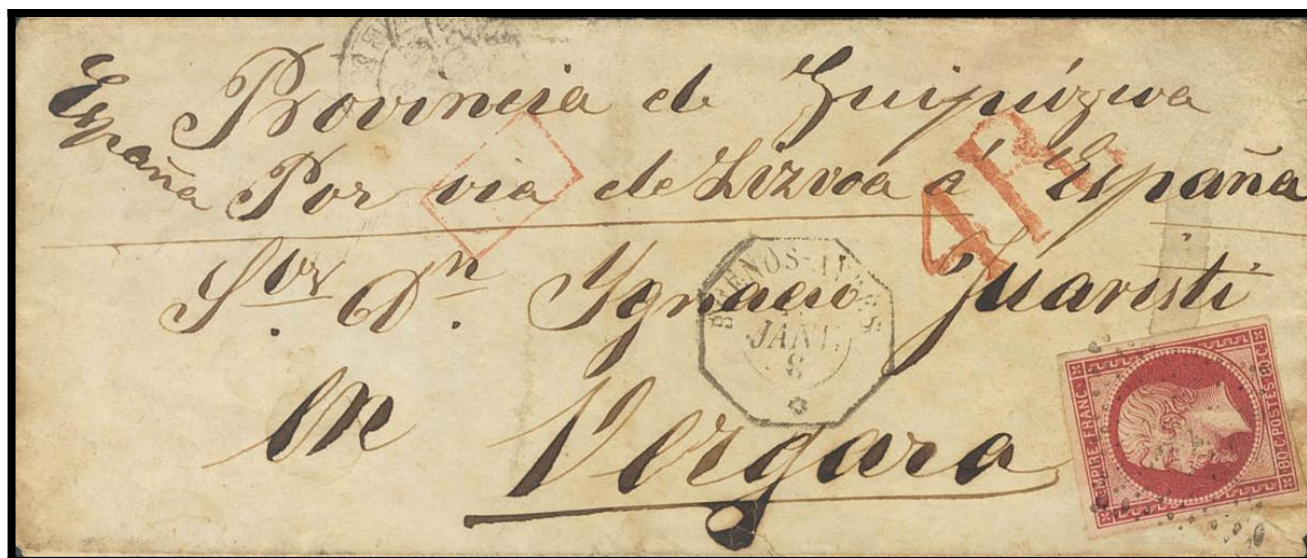 España
Provincia de Guipúzcoa
Por via de Lizvoa á España
Sor Dn Ygnacio Juaristi
en
Vergara
4R.
BUENOS-AYRES
JANV.
8
EMPIRE FRANC.
80 C POSTES 80 C